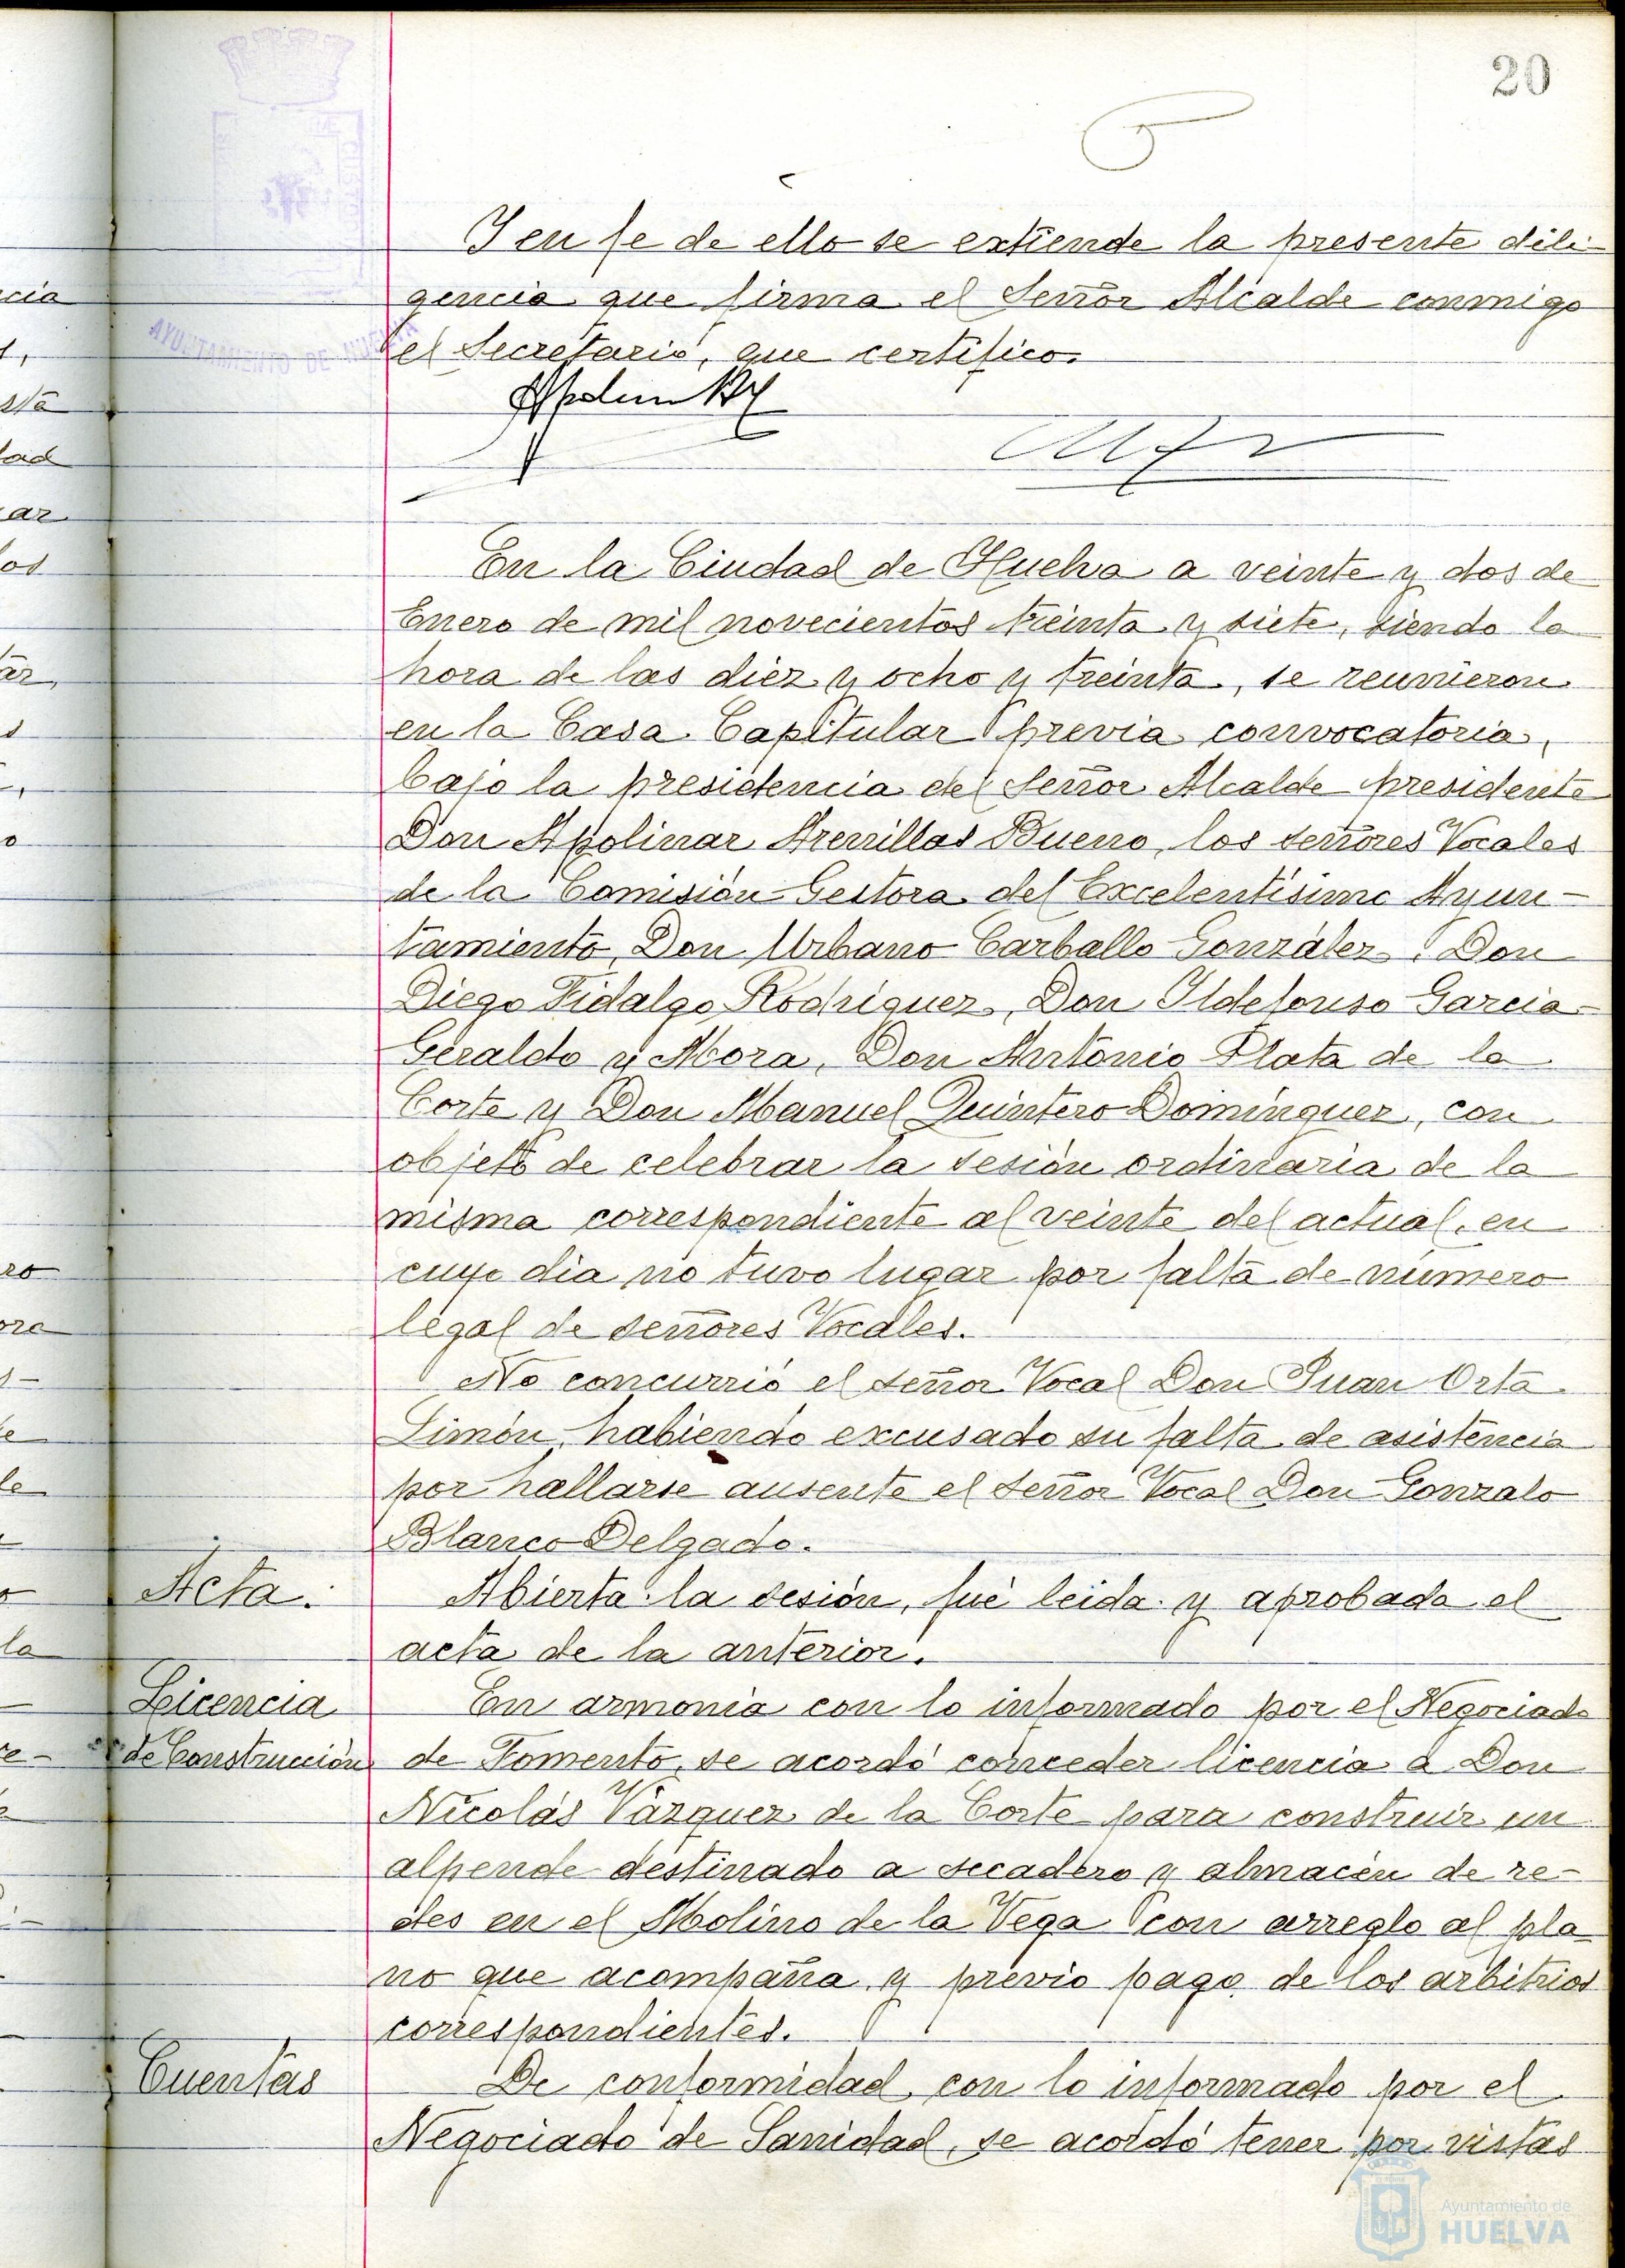 20
Y en fe de ello se extiende la presente dili-
gencia que firma el Señor Alcalde conmigo
el Secretario, que certifico.
AYUNTAMIENTO DE HUELVA
En la Ciudad de Huelva a veinte y dos de
Enero de mil novecientos treinta y siete, siendo la
hora de las diez y ocho y treinta, se reunieron
en la Casa Capitular previa convocatoria,
bajo la presidencia del Señor Alcalde presidente
Don Apolinar Arenillas Bueno, los señores Vocales
de la Comisión Gestora del Excelentísimo Ayun-
tamiento, Don Urbano Carballo González, Don
Diego Fidalgo Rodriguez, Don Ildefonso Garcia-
Geraldo y Mora, Don Antonio Plata de la
Corte y Don Manuel Quintero Dominguez, con
objeto de celebrar la sesión ordinaria de la
misma correspondiente al veinte del actual, en
cuyo dia no tuvo lugar por falta de número
legal de señores Vocales.
No concurrió el señor Vocal Don Juan Orta
Limón, habiendo excusado su falta de asistencia
por hallarse ausente el señor Vocal Don Gonzalo
Blanco Delgado.
Acta.
Abierta la sesión, fué leida y aprobada el
acta de la anterior.
Licencia
de Construcción
En armonia con lo informado por el Negociado
de Fomento, se acordó conceder licencia a Don
Nicolás Vazquez de la Corte para construir un
alpende destinado a secadero y almacén de re-
des en el Molino de la Vega con arreglo al pla
no que acompaña y previo pago de los arbitrios
correspondientes.
Cuentas
De conformidad con lo informado por el
Negociado de Sanidad, se acordó tener por vistas
Ayuntamiento de
HUELVA